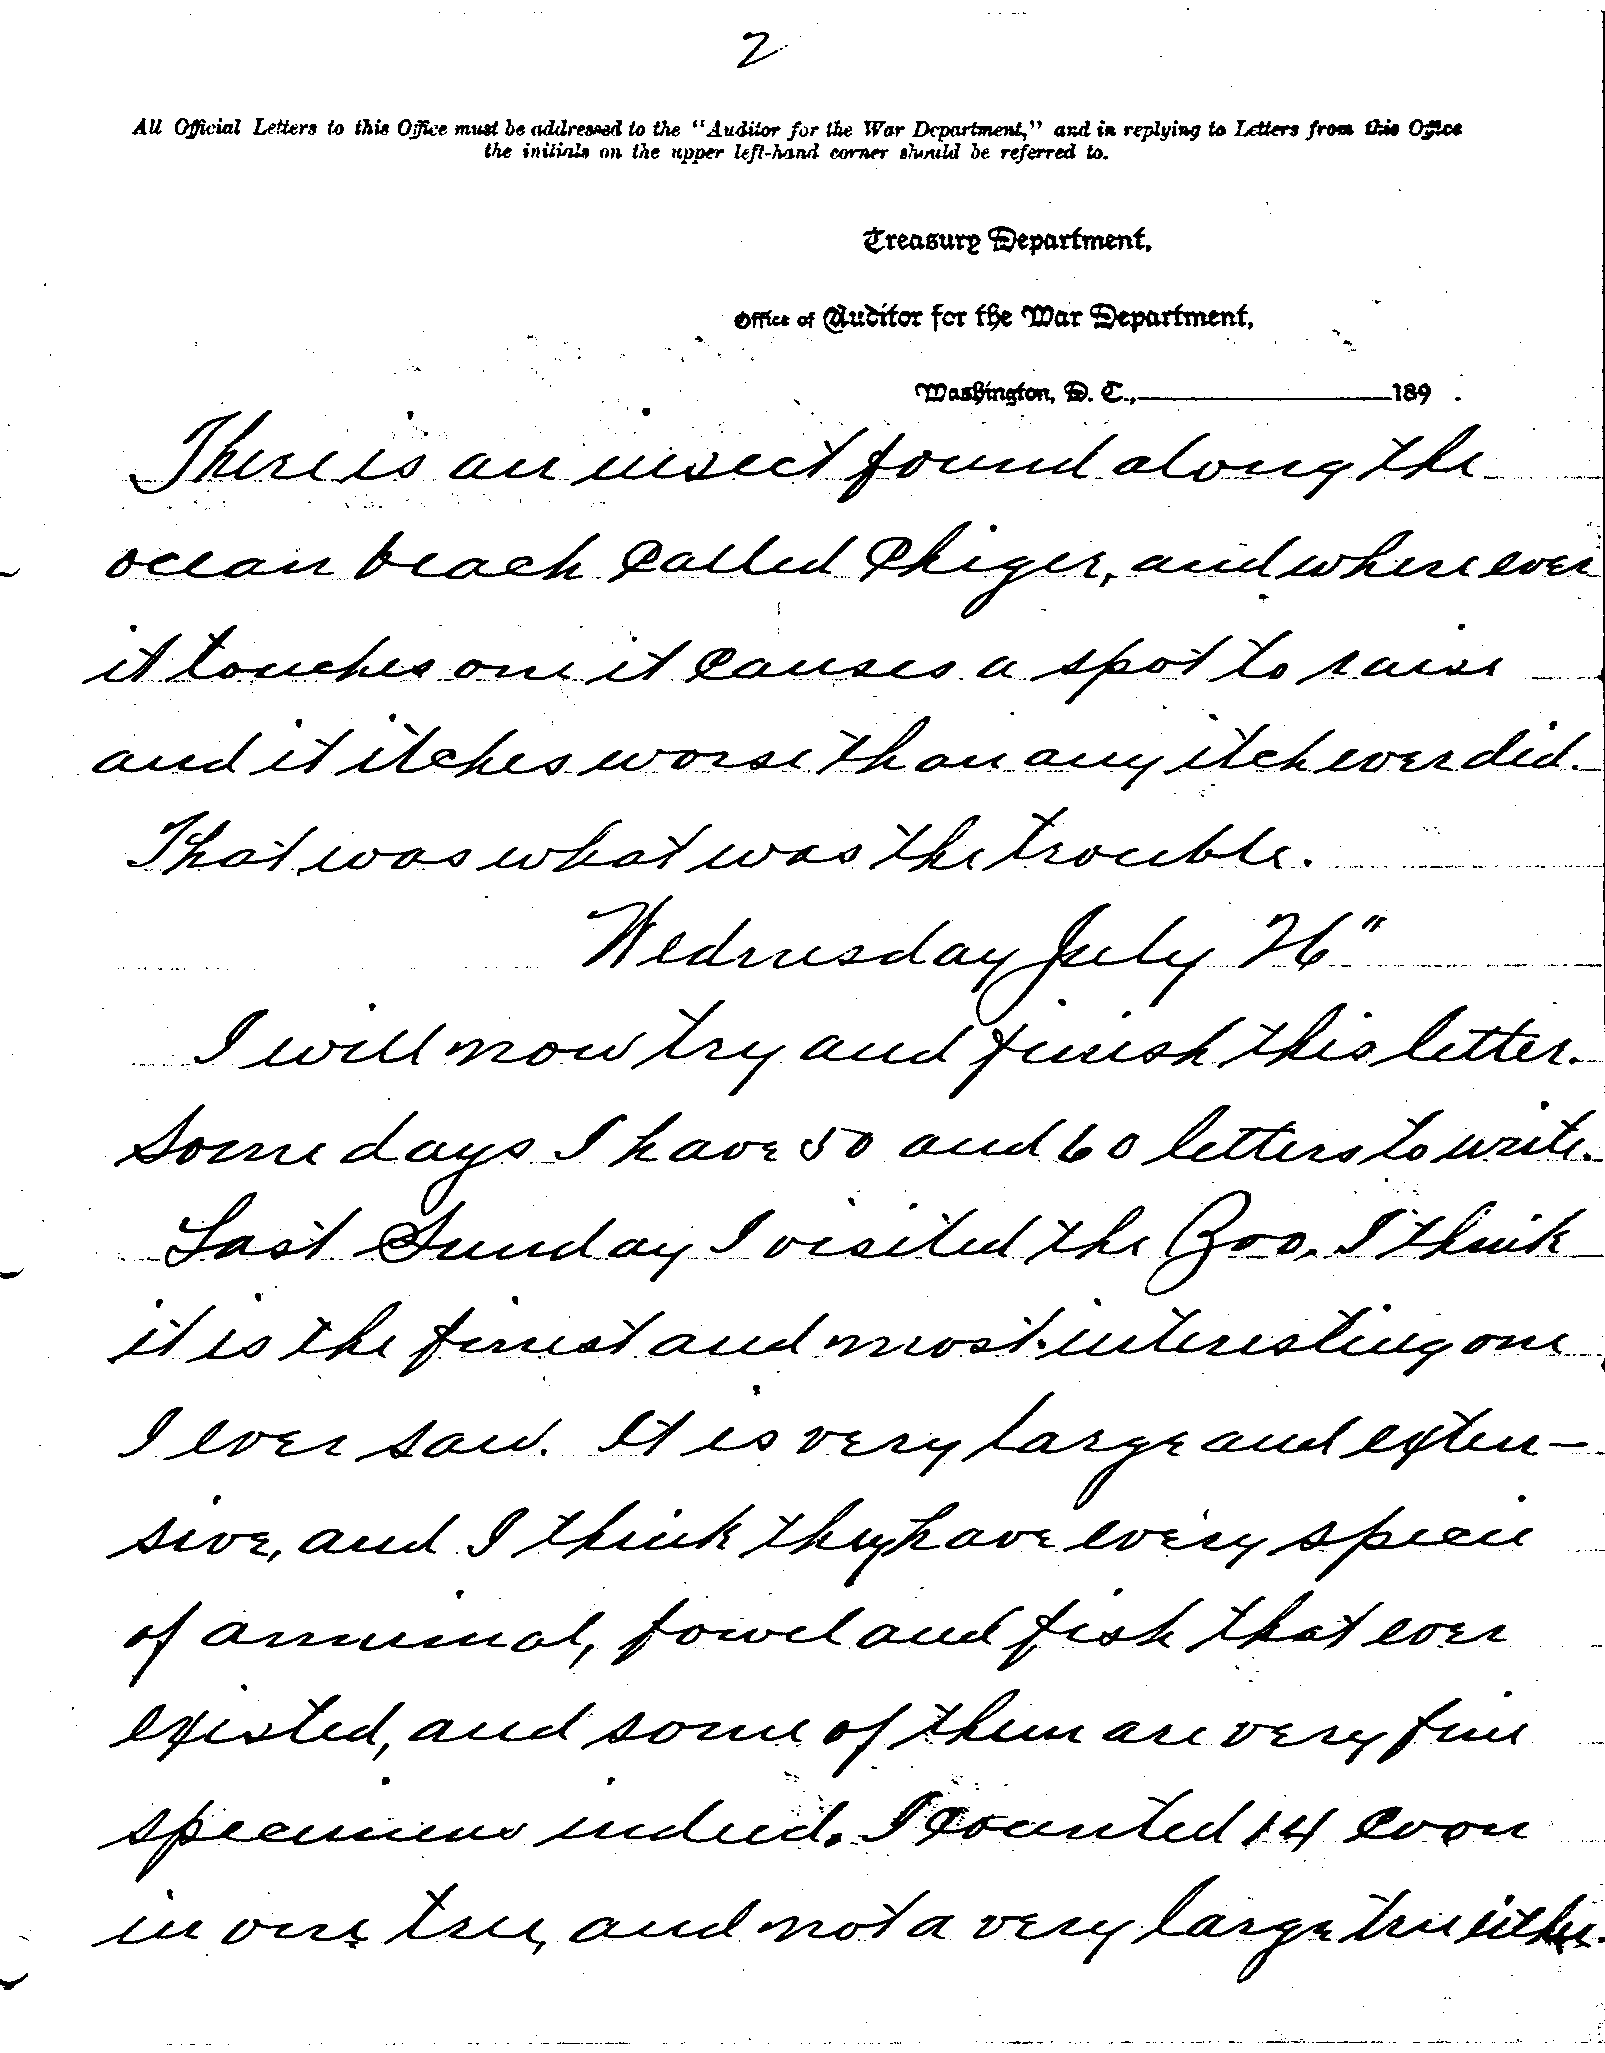 2
All Official Letters to this Office must be addressed to the "Auditor for the War Department," and in replying to Letters from this Office
the initials on the upper left-hand corner should be referred to.
Treasury Department,
Office of Auditor for the War Department,
Washington, D. C., 189 .
There is an insect found along the
ocean beach called Chiger, and where ever
it touches one it causes a spot to raise
and it itches worse than any itch ever did.
That was what was the trouble.
Wednesday July 26"
I will now try and finish this letter.
Some days I have 50 and 60 letters to write.
Last Sunday I visited the Zoo. I think
it is the finest and most interesting one
I ever saw. It is very large and exten-
sive, and I think they have every specie
of annimal, fowel and fish that ever
existed, and some of them are very fine
specimens indeed. I counted 14 coon
in one tree, and not a very large tree either.